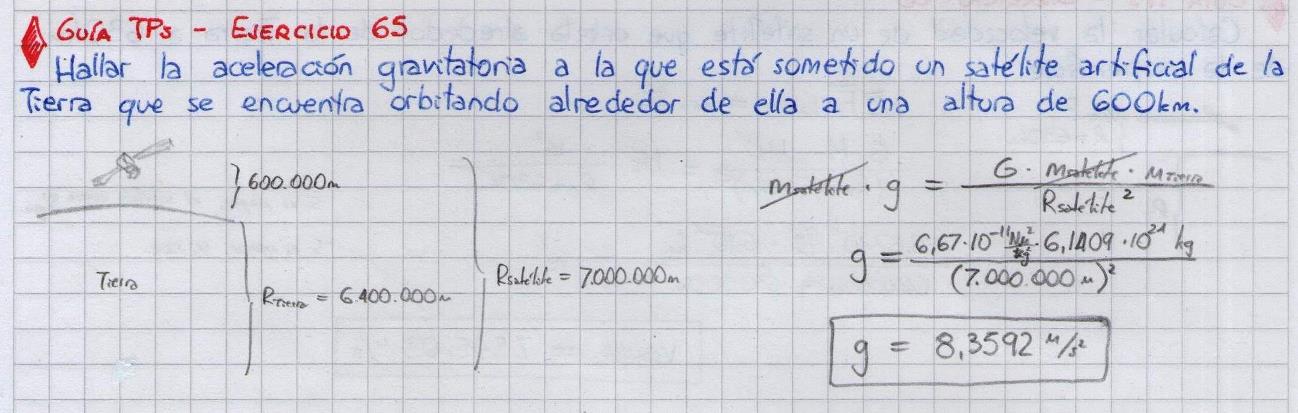 GUÍA TPs - EJERCICIO 65
Hallar la aceleración gravitatoria a la que está sometido un satélite artificial de la
Tierra que se encuentra orbitando alrededor de ella a una altura de 600km.
600.000m
Tierra
RTierra = 6.400.000m
Rsatélite = 7.000.000m
msatélite · g = G · msatélite · MTierra / Rsatélite²
g = 6,67·10⁻¹¹ Nm²/kg² · 6,1409·10²⁴ kg / (7.000.000 m)²
g = 8,3592 m/s²